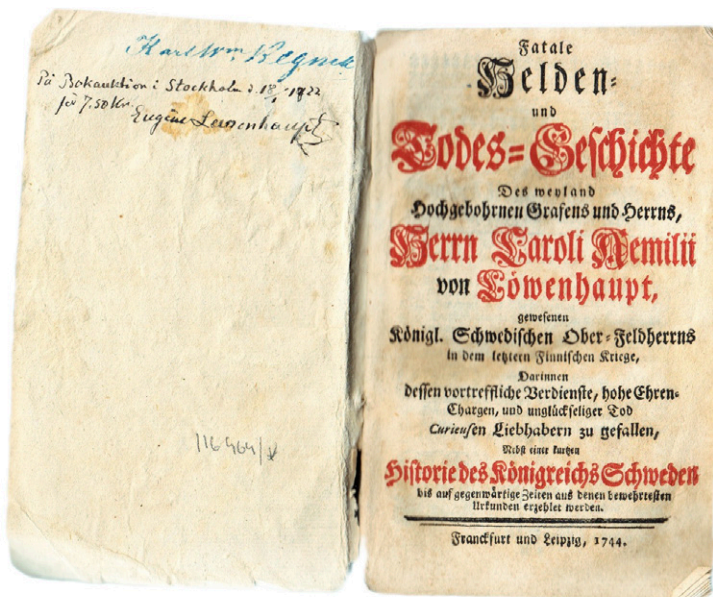 Karl Wm.
På Bokauktion i Stockholm d. 18/1 1922
för 7.50 Kr.
Eugène Lewenhaupt
116464/
Fatale
Helden-
und
Todes=Geschichte
Des weyland
Hochgebohrnen Grafens und Herrns,
Herrn Caroli Aemilii
von Löwenhaupt,
gewesenen
Königl. Schwedischen Ober-Feldherrns
in dem letztern Finnischen Kriege,
Darinnen
dessen vortreffliche Verdienste, hohe Ehren-
Chargen, und unglückseliger Tod
Curieusen Liebhabern zu gefallen,
Nebst einer kurtzen
Historie des Königreichs Schweden
bis auf gegenwärtige Zeiten aus denen bewehrtesten
Urkunden erzehlet werden.
Franckfurt und Leipzig, 1744.